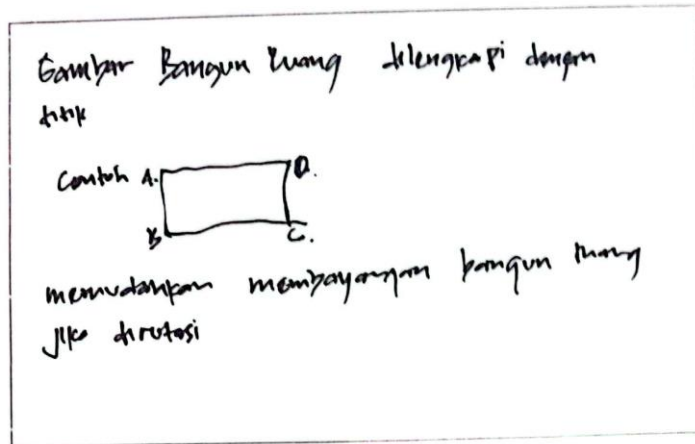 Gambar Bangun Ruang dilengkapi dengan
titik
Contoh A. D.
B C.
memudahkan membayangkan bangun ruang
jika dirotasi